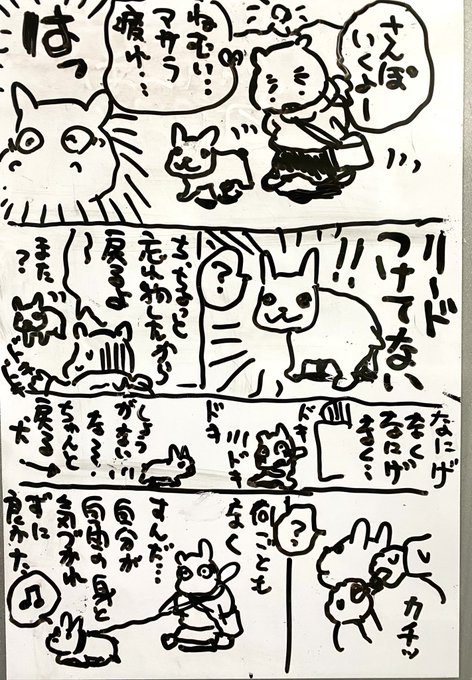 さんぽ
いくよー
ねむい…
疲れ…
はっ
リード
つけてない
!!
?
ち、ちょっと
忘れ物したから
戻るよ
〜
また
?
なにげ
なく
なにげ
なく…
ドキ
ドキ
ドキ
しょう
がない
な〜…
ちゃんと
戻る
犬
カチッ
?
何ごとも
なく
すんだ…
自分が
自由の身と
気づかれ
ずに
良かった
♪